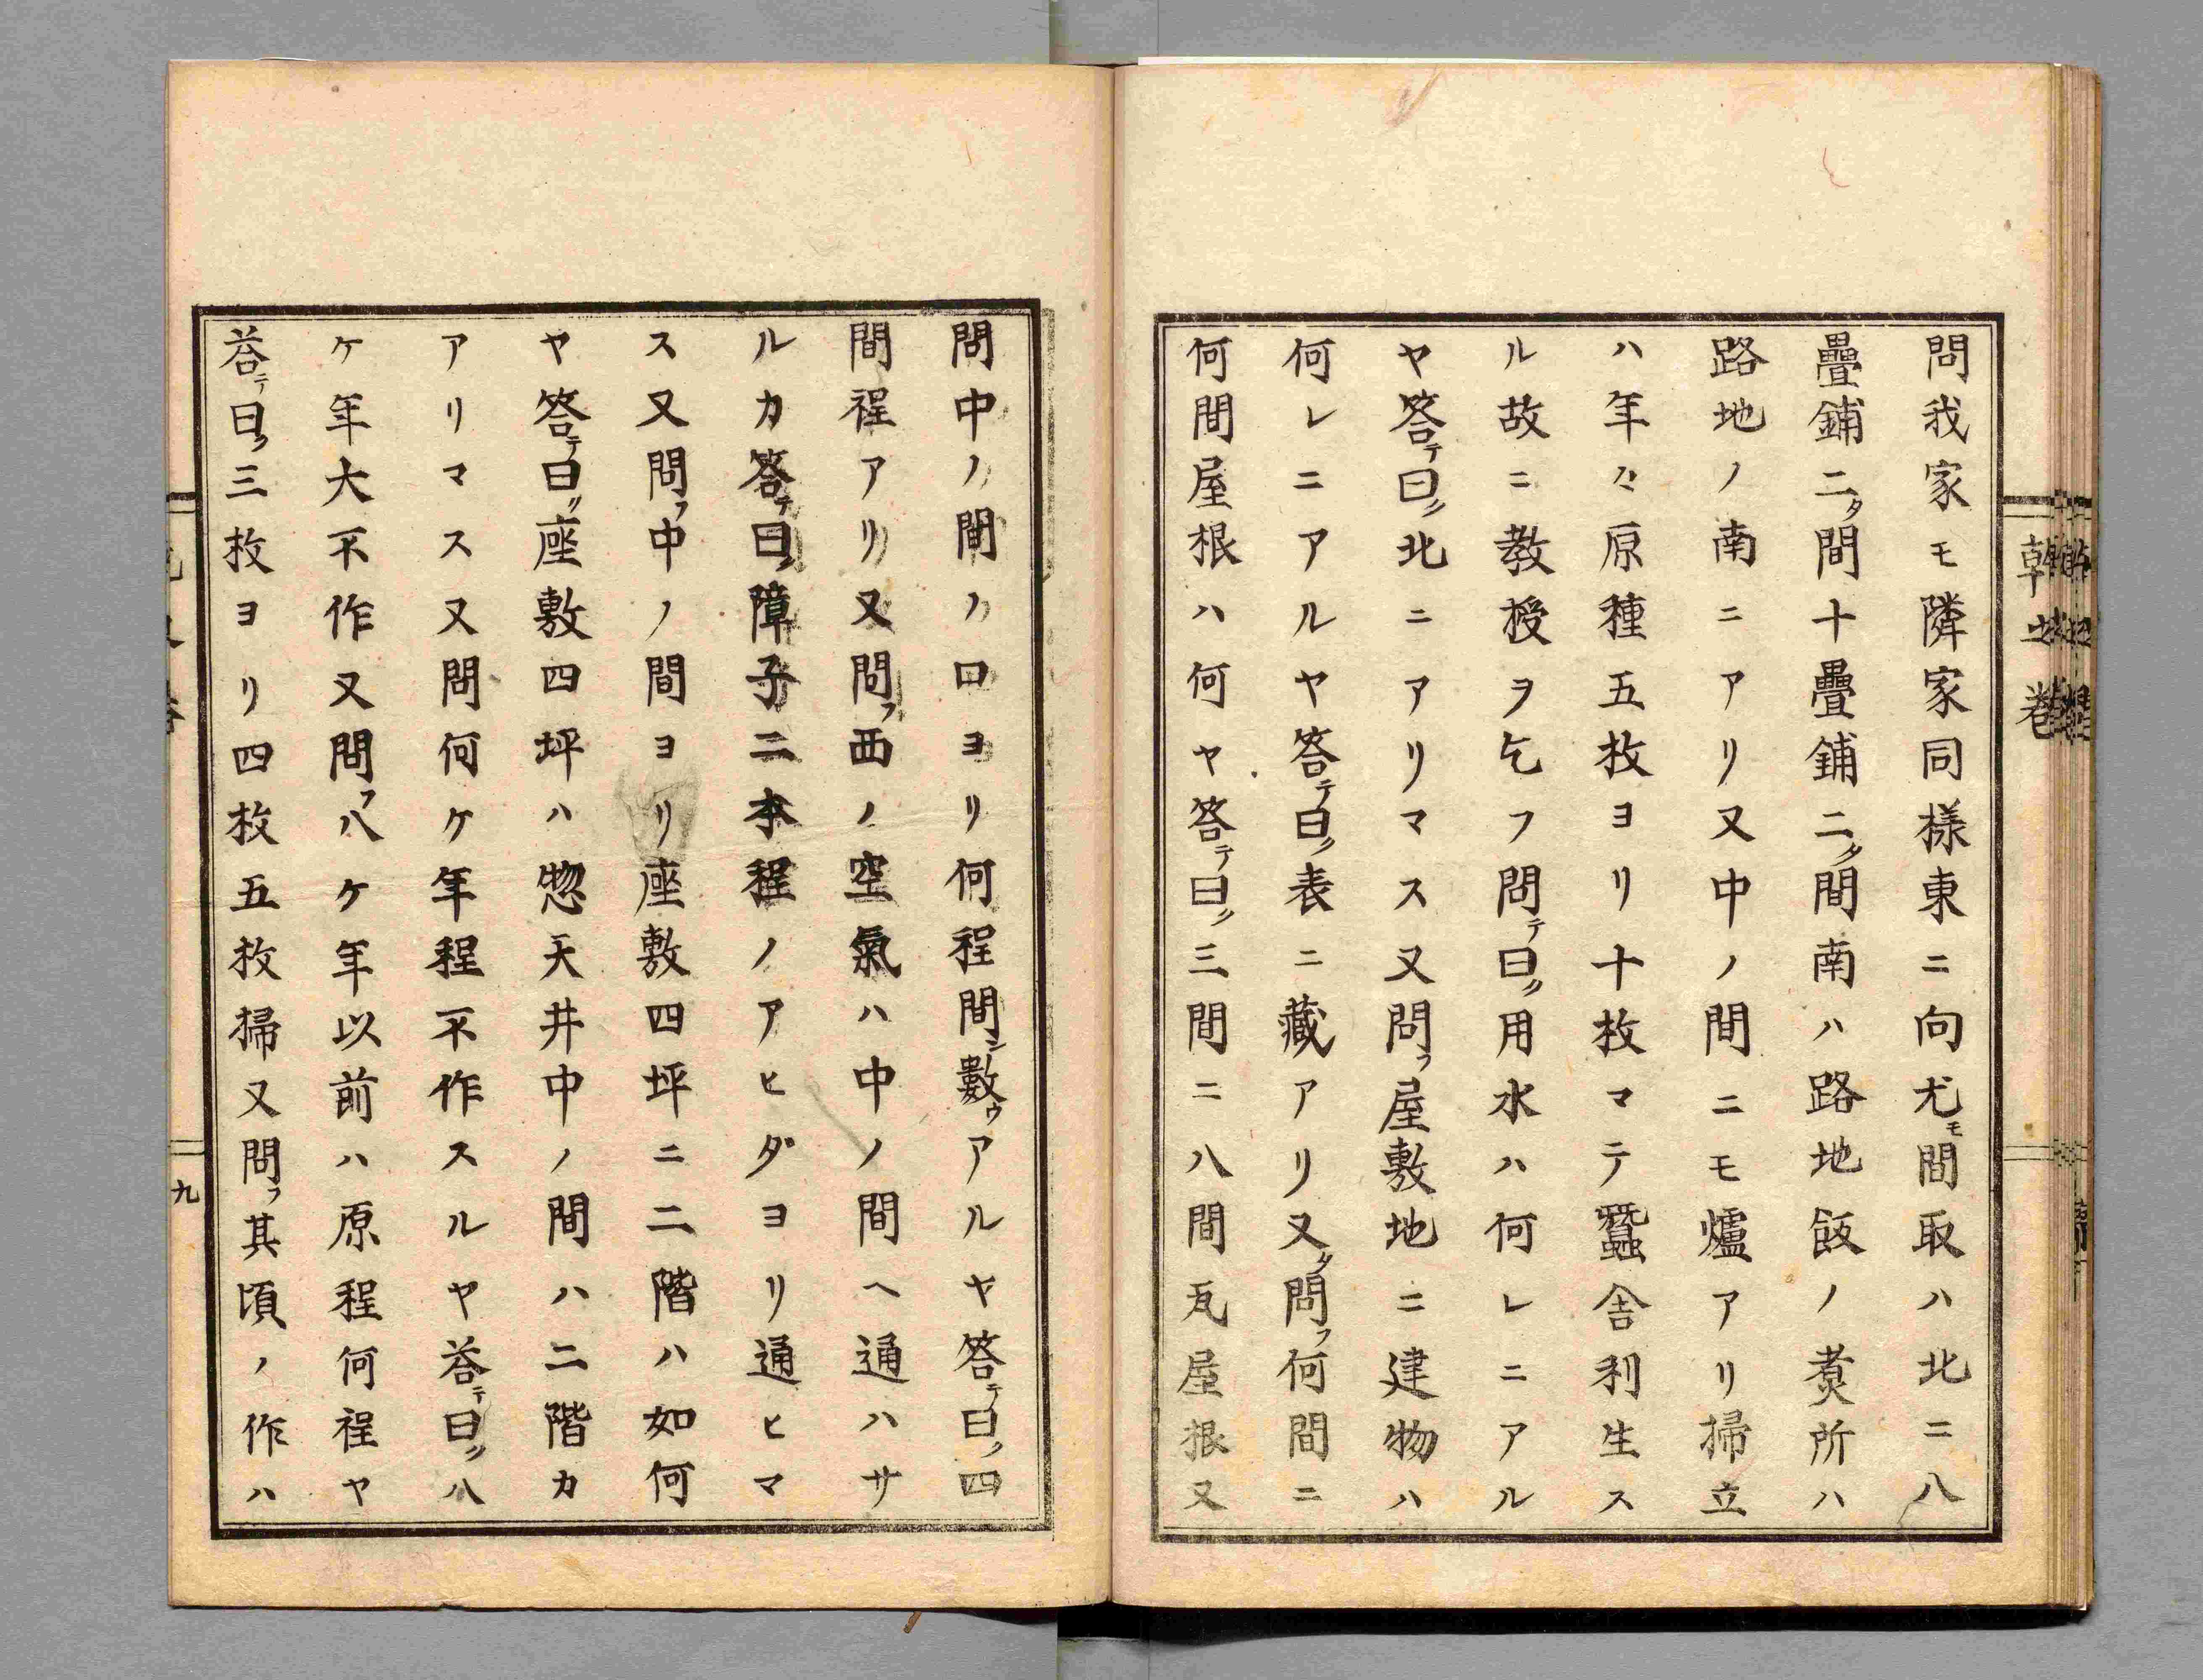 問我家モ隣家同樣東ニ向尤モ間取ハ北ニ八
疊鋪二タ間十疊鋪二タ間南ハ路地飯ノ煑所ハ
路地ノ南ニアリ又中ノ間ニモ爐アリ掃立
ハ年々原種五枚ヨリ十枚マテ蠶舎利生ス
ル故ニ教授ヲ乞フ問テ曰ク用水ハ何レニアル
ヤ答テ曰ク北ニアリマス又問フ屋敷地ニ建物ハ
何レニアルヤ答テ曰ク表ニ藏アリ又タ問フ何間ニ
何間屋根ハ何ヤ答テ曰ク三間ニ八間瓦屋根又
乾之巻
問中ノ間ノ口ヨリ何程間シ數ウアルヤ答テ曰ク四
間程アリ又問フ西ノ空氣ハ中ノ間ヘ通ハサ
ルカ答テ曰ク障子二本程ノアヒダヨリ通ヒマ
ス又問フ中ノ間ヨリ座敷四坪ニ二階ハ如何
ヤ答テ曰ク座敷四坪ハ惣天井中ノ間ハ二階カ
アリマス又問何ケ年程不作スルヤ答テ曰ク八
ケ年大不作又問フ八ケ年以前ハ原程何程ヤ
答テ曰ク三枚ヨリ四枚五枚掃又問フ其頃ノ作ハ
九